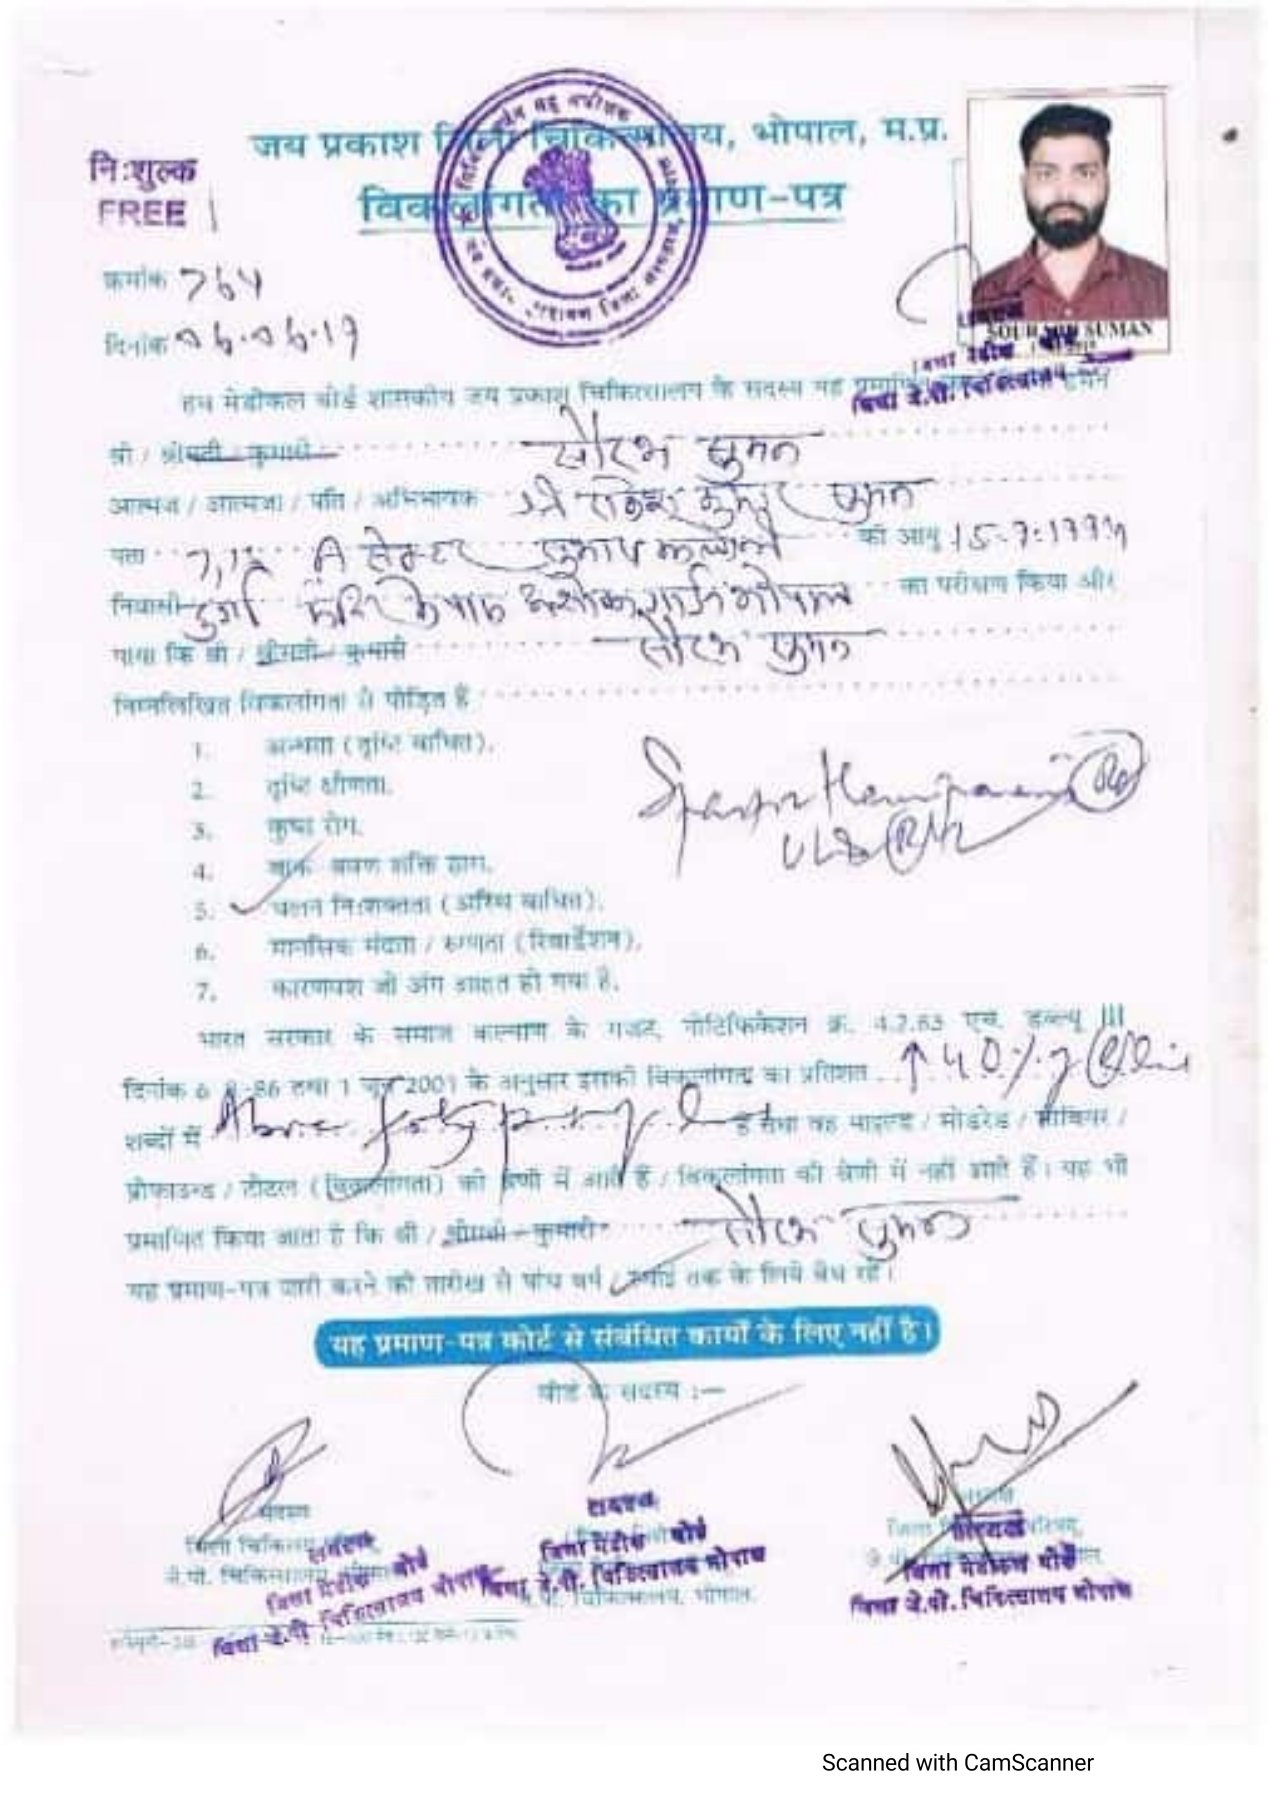 जय प्रकाश जिला चिकित्सालय, भोपाल, म.प्र.
नि:शुल्क
FREE
विकलांगता का प्रमाण-पत्र
क्रमांक 764
दिनांक 06.06.19
SUMAN
हम मेडीकल बोर्ड शासकीय जय प्रकाश चिकित्सालय के सदस्य यह
श्री / श्रीमती कुमारी सौरभ सुमन
आत्मज / आत्मजा / पति / अभिभावक श्री राकेश कुमार सुमन
पता A सेक्टर सुभाष कालोनी की आयु
निवासी दुर्गा मंदिर के पास अशोका गार्डन भोपाल का परीक्षण किया और
पाया कि श्री / श्रीमती कुमारी सौरभ सुमन
निम्नलिखित विकलांगता से पीड़ित हैं
1. अन्धता (दृष्टि बाधित).
2. दृष्टि क्षीणता.
3. कुष्ठ रोग.
4. वाक श्रवण शक्ति ह्रास.
5. चलन नि:शक्तता (अस्थि बाधित).
6. मानसिक मंदता / रुग्णता (रिटार्डेशन).
7. कारणवश जो अंग आहत हो गया है.
भारत सरकार के समाज कल्याण के गजट, नोटिफिकेशन क्र. 4.2.83 एच. डब्ल्यू III
दिनांक 6 8-86 तथा 1 जून 2001 के अनुसार इसकी विकलांगता का प्रतिशत ↑ 40%
शब्दों में Above forty है तथा वह माइल्ड / मोडरेड / सीवियर /
प्रोफाउन्ड / टोटल (विकलांगता) की श्रेणी में आते हैं / विकलांगता की श्रेणी में नहीं आते हैं। यह भी
प्रमाणित किया जाता है कि श्री / श्रीमती - कुमारी सौरभ सुमन
यह प्रमाण-पत्र जारी करने की तारीख से पांच वर्ष / स्थाई तक के लिये वैध रहे।
यह प्रमाण-पत्र कोर्ट से संबंधित कार्यों के लिए नहीं है।
बोर्ड के सदस्य :—
सदस्य
जिला मेडीकल बोर्ड
जिला जे.पी. चिकित्सालय भोपाल
सदस्य
जिला मेडीकल बोर्ड
जिला जे.पी. चिकित्सालय भोपाल
जिला मेडीकल बोर्ड
जिला जे.पी. चिकित्सालय भोपाल
Scanned with CamScanner